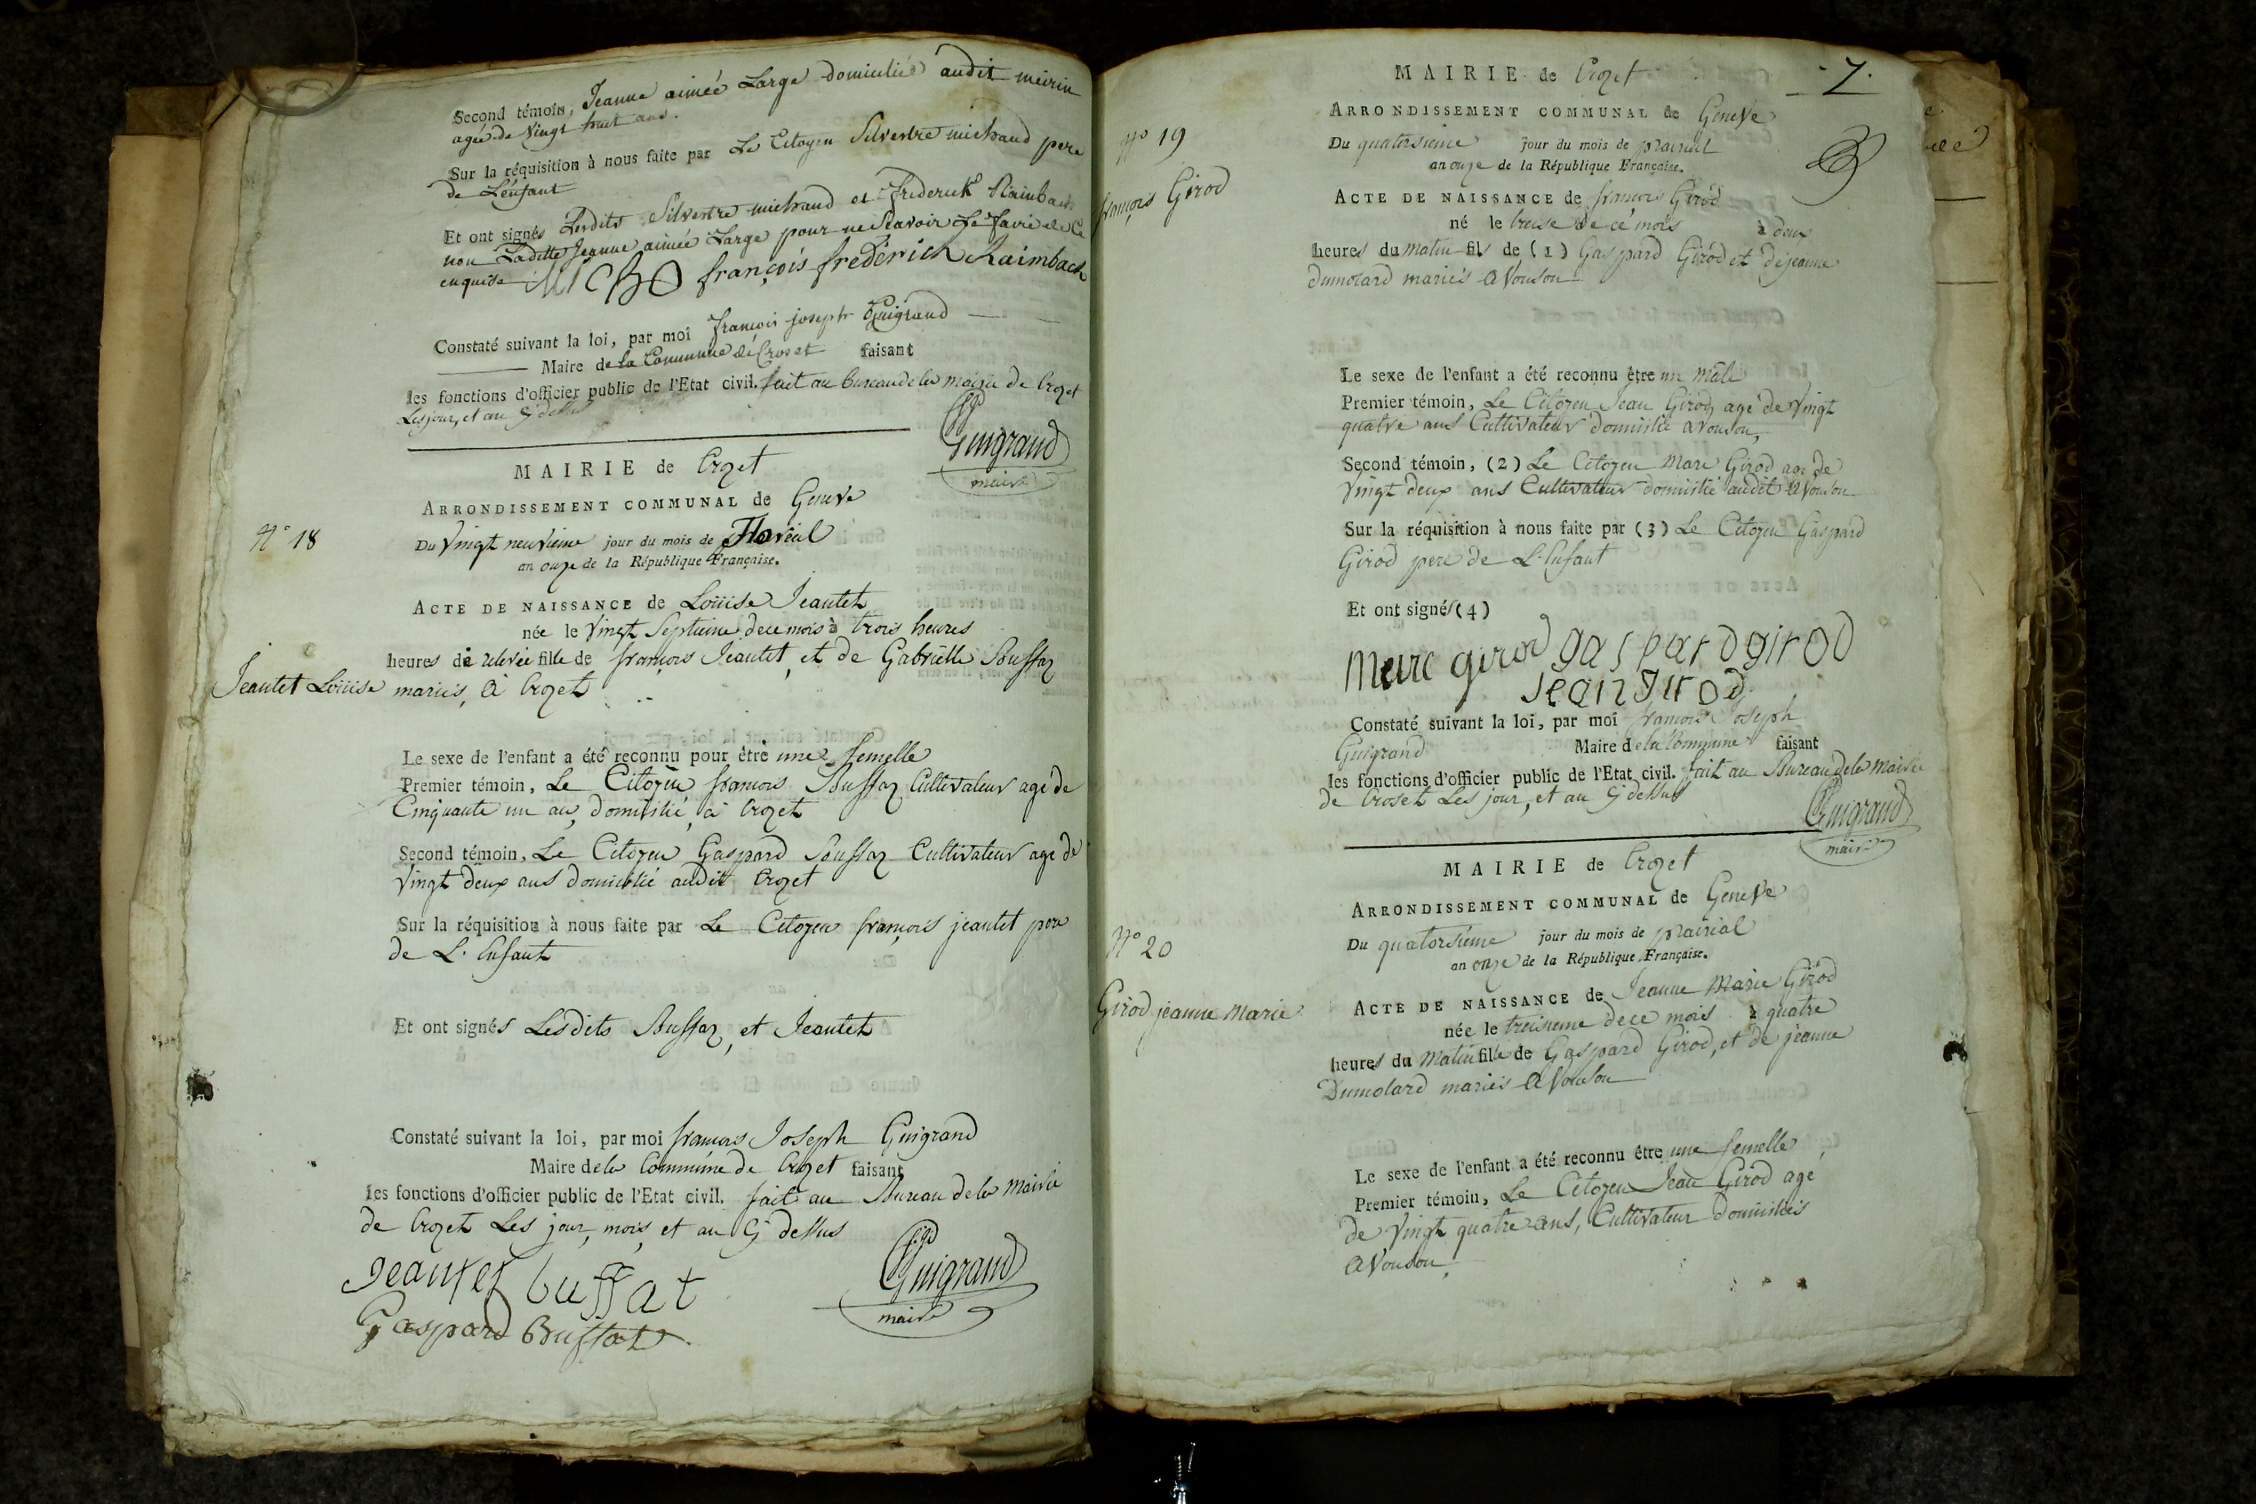 Second témoin, Jeanne aimée Large domiciliée audit meirin
agée de Vingt huit ans.
Sur la réquisition à nous faite par Le Citoyen Silvestre michaud pere
de L'enfant
Et ont signés Lesdits Silvestre michaud et frederick Raimbach
non Ladite Jeanne aimée Large pour ne Scavoir Le faire de ce
enquise MICHO françois frederich Raimbach
Constaté suivant la loi, par moi francois joseph Guigrand
Maire de la Commune de Croset faisant
les fonctions d'officier public de l'Etat civil. fait au bureau de la mairie de Crozet
Les jour, et an Cy dessus
Guigrand
maire
MAIRIE de Crozet
ARRONDISSEMENT COMMUNAL de Geneve
N° 18
Du Vingt neuvieme jour du mois de Floréal
an onze de la République Française.
ACTE DE NAISSANCE de Loüise Jeantet
née le Vingt Septieme de ce mois à trois heures
heures de relevée fille de françois Jeantet, et de Gabrielle Buffaz
Jeantet Loüise mariés, à Crozet
Le sexe de l'enfant a été reconnu pour être une femelle
Premier témoin, Le Citoyen francois Buffaz Cultivateur agé de
Cinquante un an, domicilié, à Crozet
Second témoin, Le Citoyen Gaspard Buffaz Cultivateur agé de
Vingt deux ans domicilié audit Crozet
Sur la réquisition à nous faite par Le Citoyen françois jeantet pere
de L'enfant
Et ont signés Lesdits Buffaz, et Jeantet
Constaté suivant la loi, par moi francois Joseph Guigrand
Maire de la Commune de Crozet faisant
les fonctions d'officier public de l'Etat civil. fait au Bureau de la Mairie
de Crozet Les jour, mois, et an Cy dessus
Jeantet buffat
Gaspard Buffat
Guigrand
maire
- 7 -
MAIRIE de Crozet
ARRONDISSEMENT COMMUNAL de Geneve
N° 19
Du quatorsieme jour du mois de prairial
an onze de la République Française.
françois Girod
ACTE DE NAISSANCE de francois Girod
né le treise de ce mois à deux
heures du matin fils de (1) Gaspard Girod et de jeanne
dumolard mariés a Vouson
Le sexe de l'enfant a été reconnu être un mâle
Premier témoin, Le Citoyen Jean Girod, agé de Vingt
quatre ans Cultivateur domicilié a Vouson,
Second témoin, (2) Le Citoyen Marc Girod agé de
Vingt deux ans Cultivateur domicilié audit a Vouson
Sur la réquisition à nous faite par (3) Le Citoyen Gaspard
Girod pere de L'enfant
Et ont signés (4)
Marc girod gaspard girod
jean girod
Constaté suivant la loi, par moi francois Joseph
Guigrand Maire de la Commune faisant
les fonctions d'officier public de l'Etat civil. fait au Bureau de la mairie
de Croset Les jour, et an Cy dessus
Guigrand
maire
MAIRIE de Crozet
ARRONDISSEMENT COMMUNAL de Geneve
N° 20
Du quatorsieme jour du mois de prairial
an onze de la République Française.
Girod jeanne Marie
ACTE DE NAISSANCE de Jeanne Marie Girod
née le treisieme de ce mois à quatre
heures du Matin fille de Gaspard Girod, et de jeanne
Dumolard mariés a Vouson
Le sexe de l'enfant a été reconnu être une femelle
Premier témoin, Le Citoyen Jean Girod agé
de Vingt quatre ans, Cultivateur domiciliés
a Vouson,